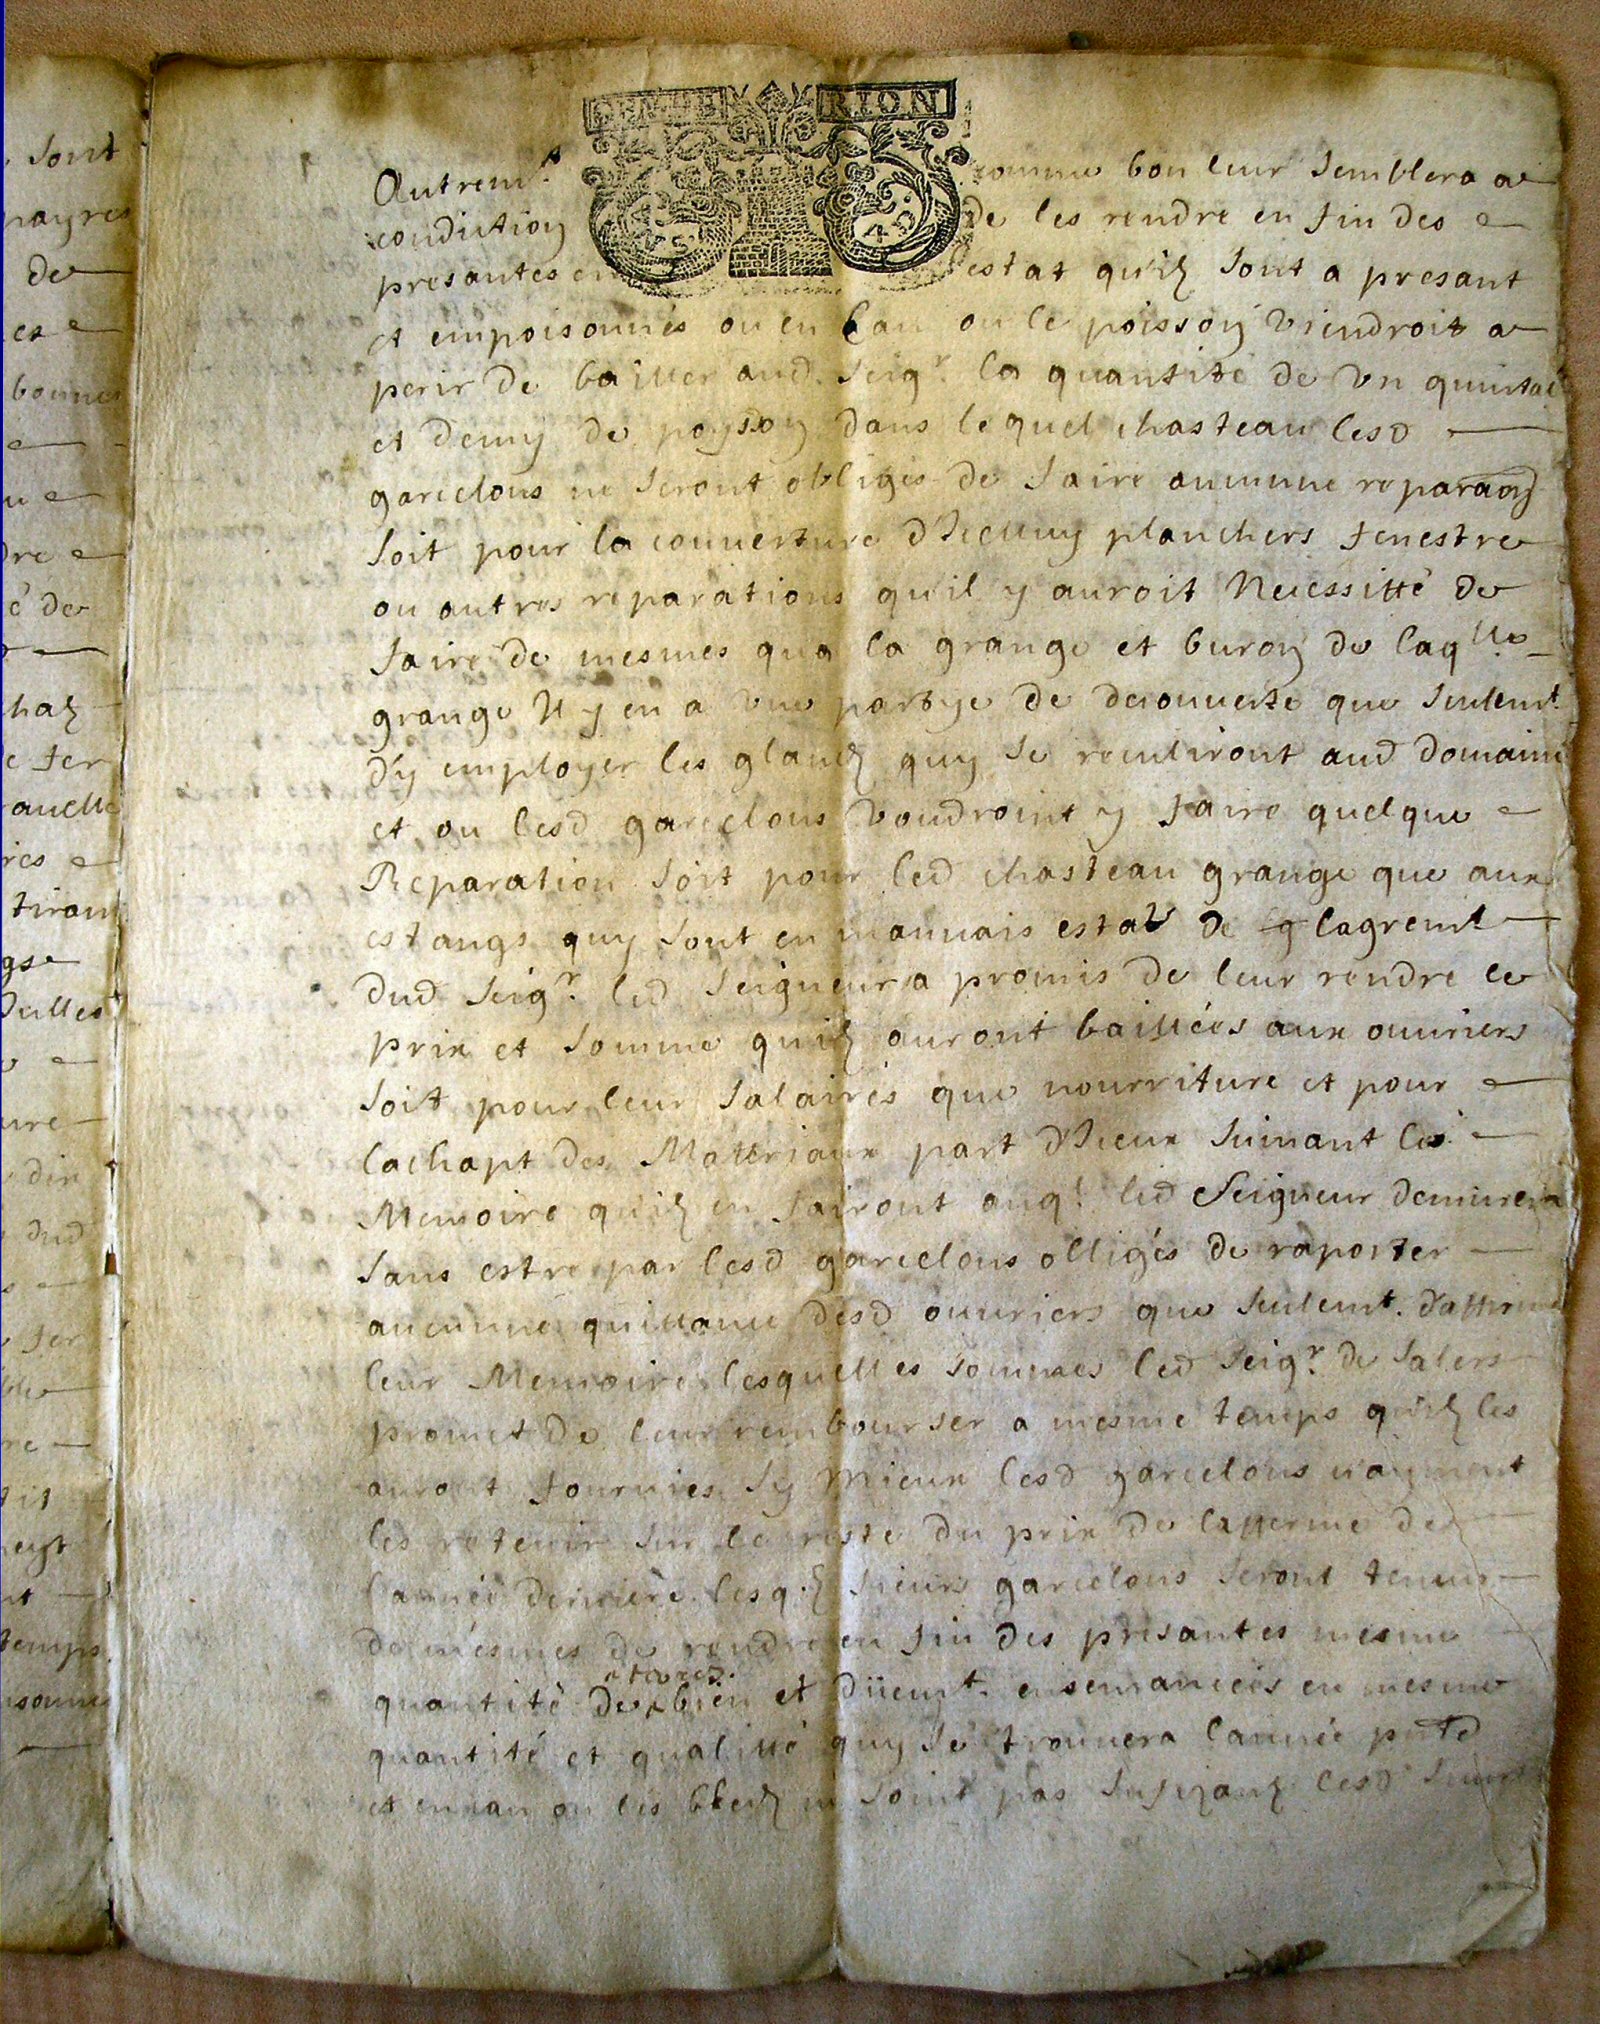 GEN DE RION
4 S
4 S
Autremt. comme bon leur semblera a
condiction de les rendre en fin des
presantes en estat quilz sont a presant
et empoisonnés ou en cau ou le poisson viendroit a
perir de bailler aud. seigr. la quantité de un quintal
et demy de poysson dans lequel chasteau lesd
garcelons ne seront obligés de faire aucunne reparaon
soit pour la couverture d'Icelluy planchers fenestre
ou autres reparations qu'il y auroit Necessitté de
faire de mesmes qua la grange et buron de laqlle.
grange Il y en a une partye de decouverte que seulemt
d'y employer les glandz quy se reculiront aud domaine
et ou lesd garcelons voudroint y faire quelque
Reparation soit pour led chasteau grange que aux
estangs quy sont en mauvais estat de lagremt
dud seigr. led seigneur a promis de leur rendre le
prix et somme quilz auront baillées aux ouvriers
soit pour leur salaires que nourriture et pour
lachapt des Matteriaux part d'Iceux suivant les
Memoire quilz en fairont auql. led Seigneur demurera
sans estre par lesd garcelons obligés de raporter
aucunne quittance desd ouvriers que seulemt. d'affirmer
leur Memoire lesquelles sommes led seigr. de salers
promet de leur rembourser a mesme temps quilz les
auront fournies sy mieux lesd garcelons n'ayment
les retenir sur le reste du prix de lafferme de
l'année derniere lesq.lz sieurs garcelons seront tenus
de mesmes de rendre en fin des presantes mesme
quantité de terres bien et düemt. ensemancées en mesme
quantité et quallité quy se trouvera l'année pnte
et en cau ou les bledz ne soint pas sufizantz lesd sieurs
sont
payres
de
et
bonnes
dre
é de
halz
de fer
res
tirant
ure
dud
fer
re
temps